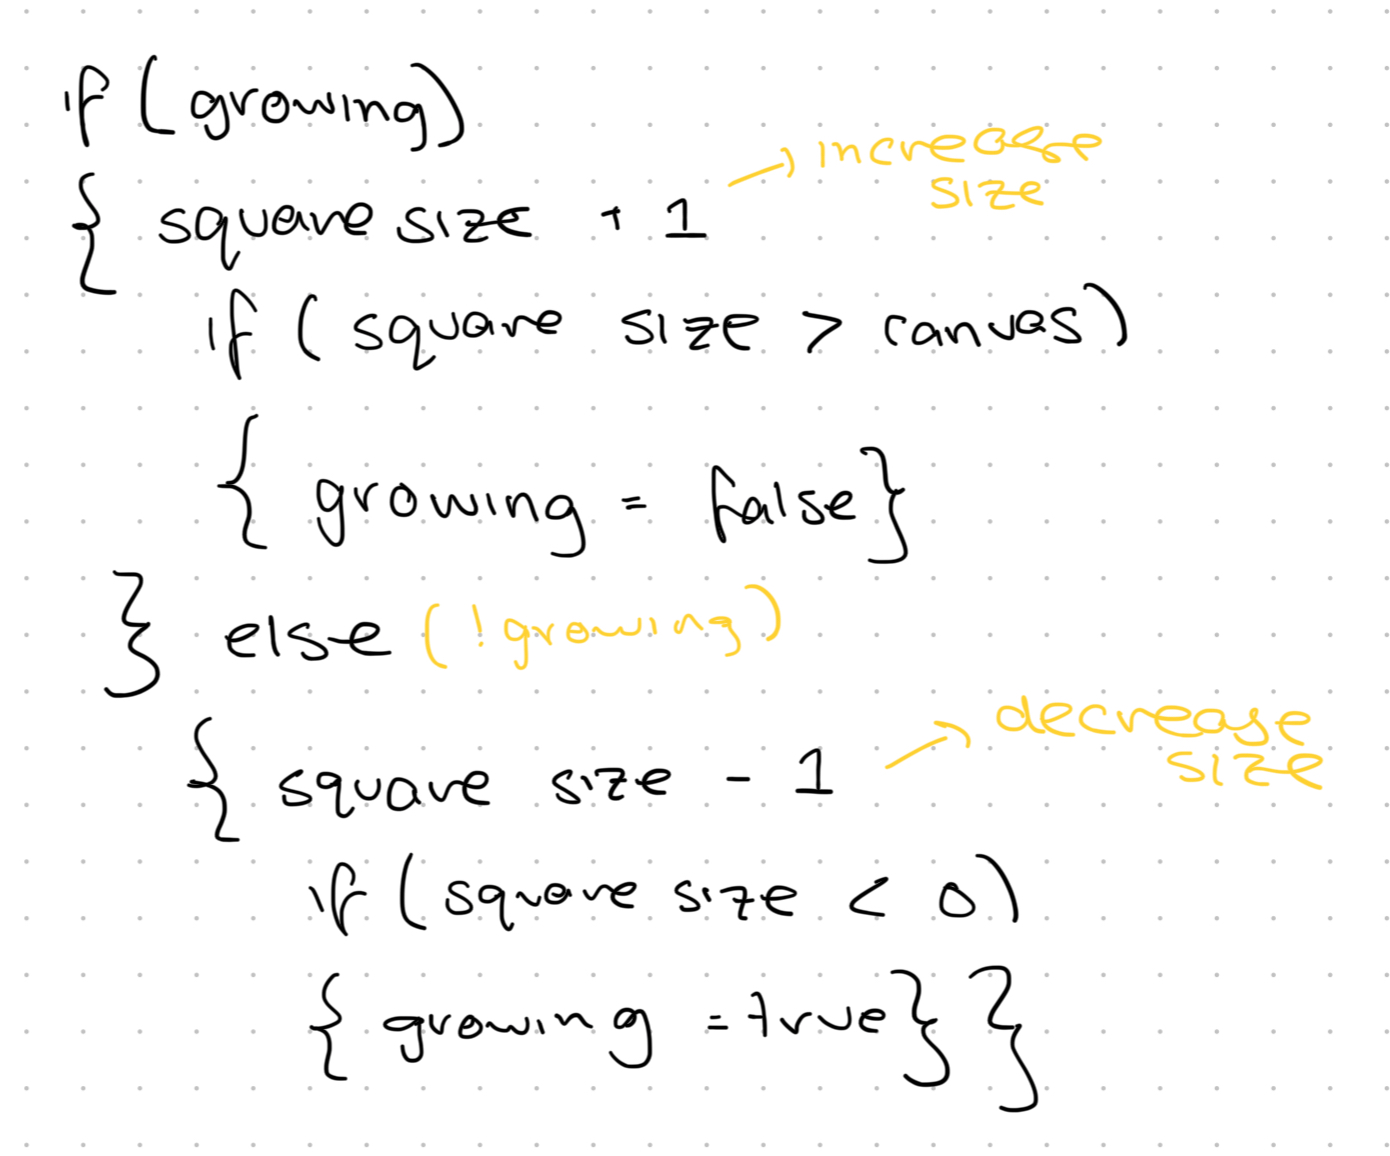 if (growing)
{ square size + 1 → increase size
if ( square size > canvas)
{ growing = false}
} else (!growing)
{ square size - 1 → decrease size
if (square size < 0)
{ growing = true} }